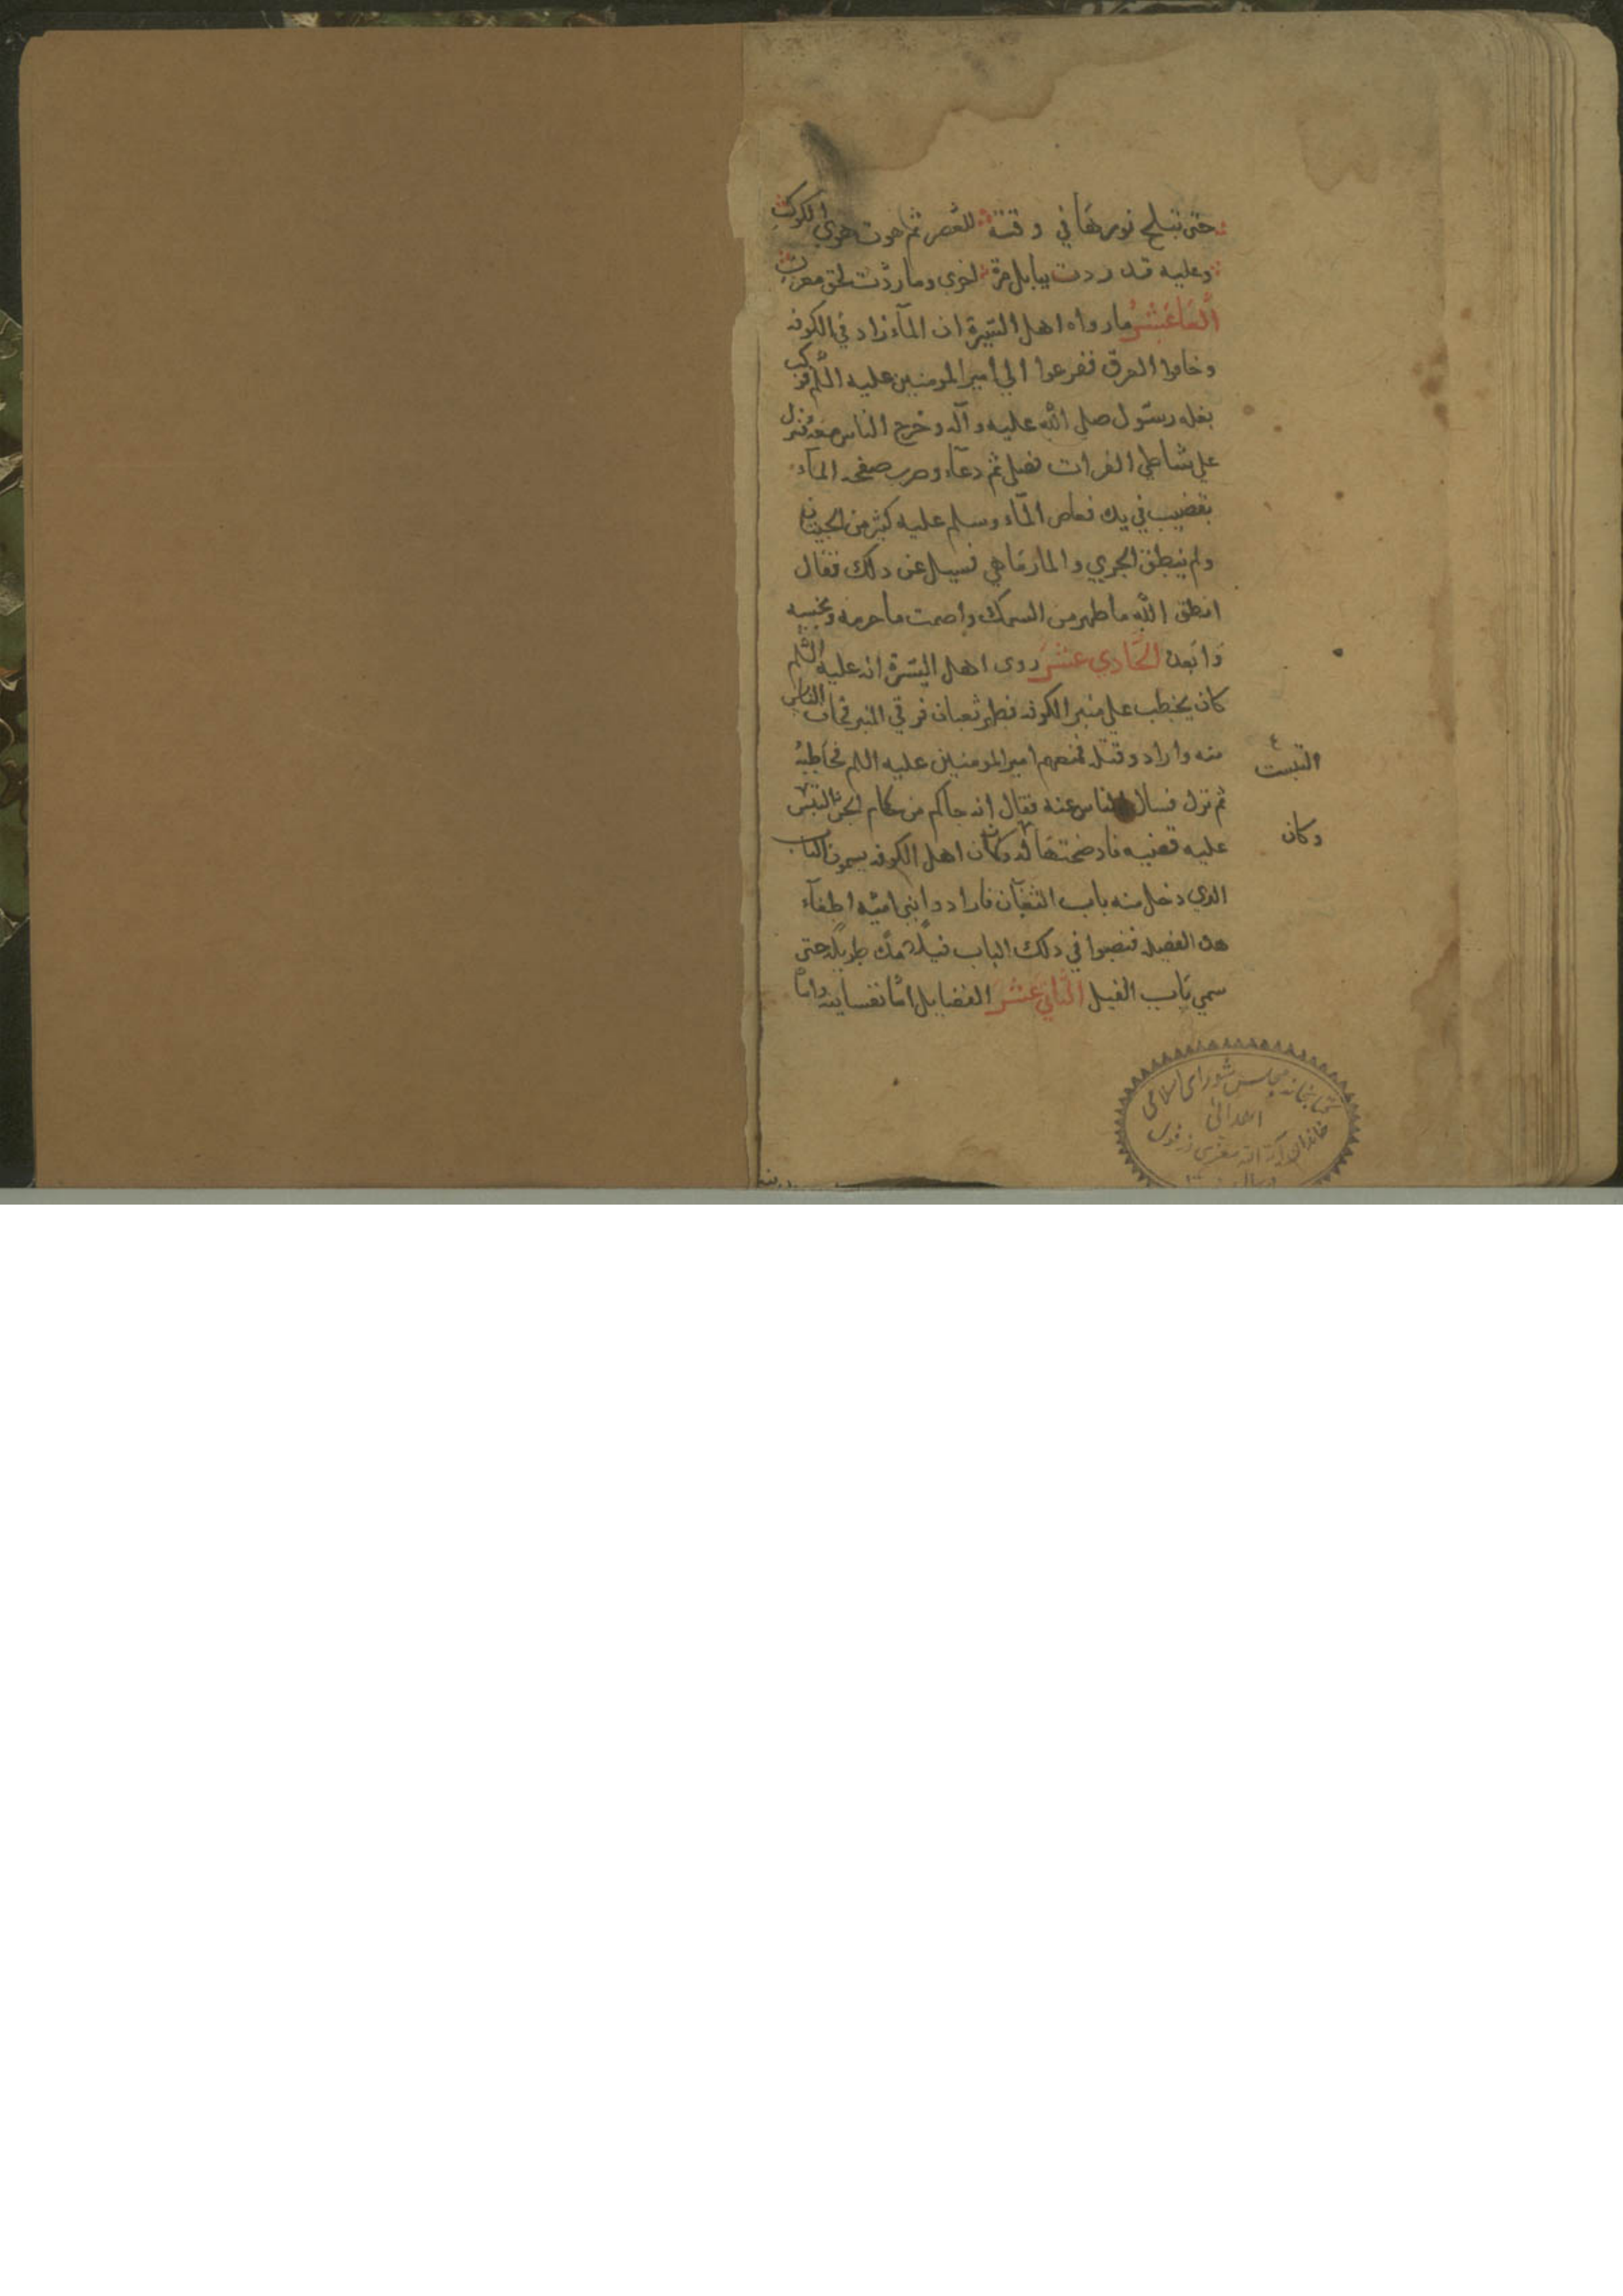 حتى تبلج نورها في وقته للعصر ثم هوت هوي الكوكب
وعليه قد ردت ببابل مرة اخرى وما ردت لخلق معرب
العاشر ما رواه اهل السيرة ان الماء زاد في الكوفه
وخافوا الغرق ففزعوا الى امير المومنين عليه السلم فركب
بغله رسول صلى الله عليه وآله وخرج الناس معه فنزل
على شاطي الفرات فصلى ثم دعا وضرب صفحه الماء
بقضيب في يده فغاص الماء وسلم عليه كثير من الحيتان
ولم ينطق الجري والمارماهي فسيل عن ذلك فقال
انطق الله ما طهر من السمك واصمت ما حرمه ونجسه
وابعده الحادي عشر روى اهل السيرة انه عليه السلم
كان يخطب على منبر الكوفه فظهر ثعبان فرقي المنبر فخاف الناس
منه وارادو قتله فمنعهم امير المومنين عليه السلم فخاطبه
ثم نزل فسال الناس عنه فقال انه حاكم من حكام الجن التبس
عليه قضيه فاوضحتها له وكان اهل الكوفه يسمون الباب
الذي دخل منه باب الثعبان فارادوا بنى اميه اطفآء
هذه الفضيله فنصبوا في ذلك الباب فيلا مدة طويله حتى
سمي باب الفيل الثاني عشر الفضايل اما نفسانيه واما
التبست
وكان
كتابخانه مجلس شوراى اسلامى
اهدائى
خاندان آية الله